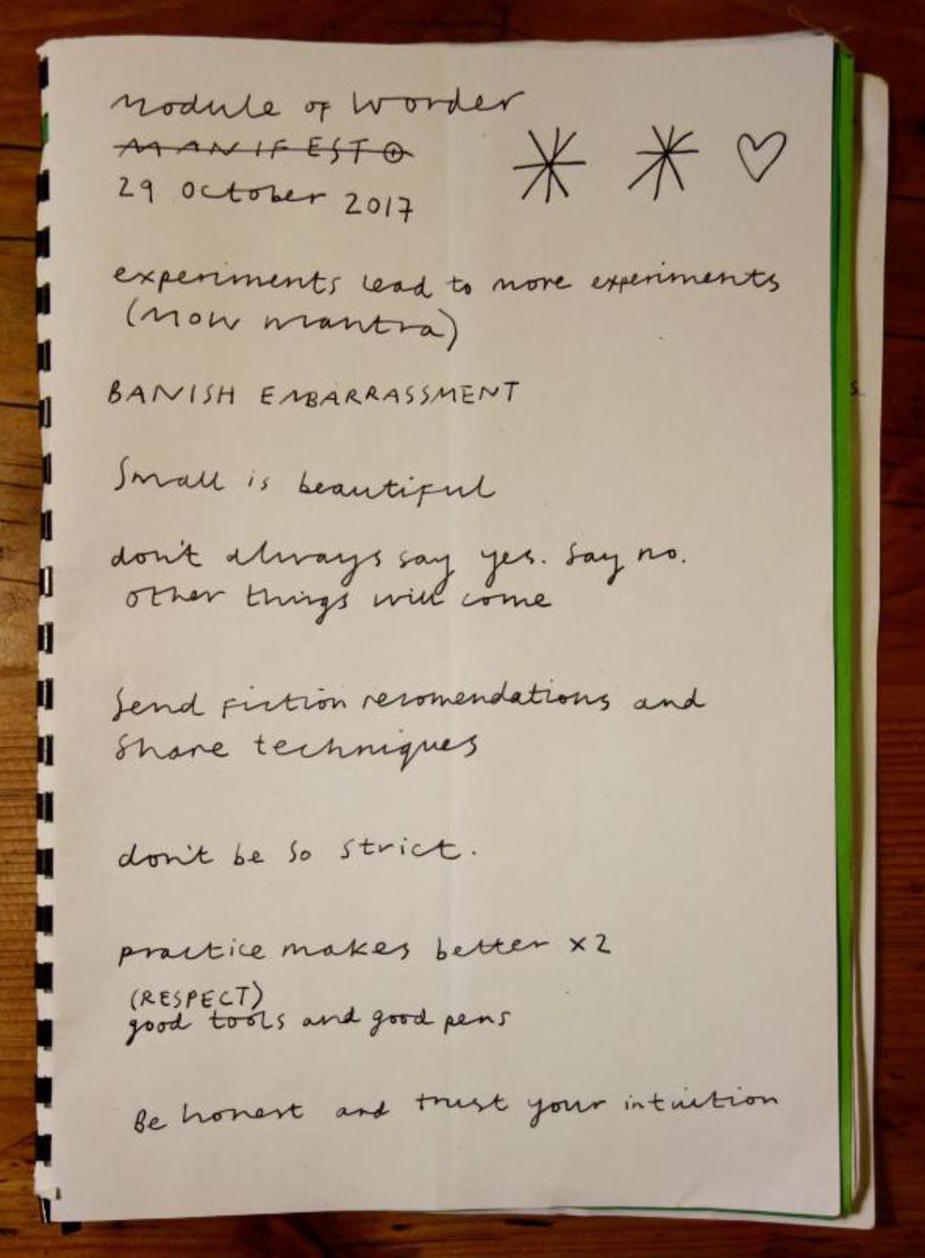 Module of Wonder
MANIFESTO
29 October 2017
experiments lead to more experiments
(MOW mantra)
BANISH EMBARRASSMENT
Small is beautiful
don't always say yes. Say no.
other things will come
Send fiction recomendations and
Share techniques
don't be so strict.
practice makes better x2
(RESPECT)
good tools and good pens
Be honest and trust your intuition